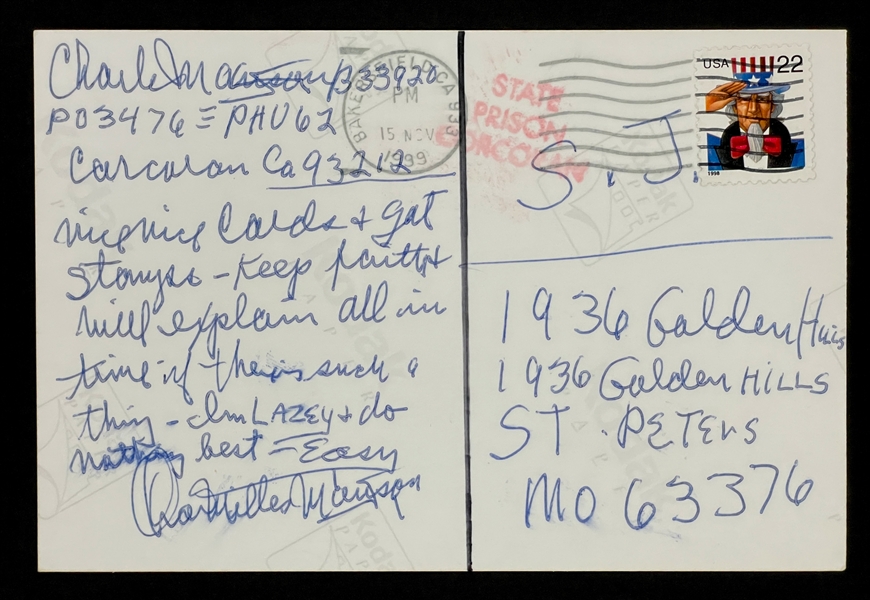 Charles Manson B33920
PO 3476 = PHU 62
Corcoran Ca 93212
nice nice Cards + got
stamps - Keep faith +
will explain all in
time - if there is such a
thing - Im LAZEY + do
nothing best = Easy
Cha Milles Manson
BAKERSFIELD CA 933
PM
15 NOV
1999
STATE
PRISON
CORCORAN
USA 22
1998
S. J.
1936 Golden Hills
1936 Golden HILLS
ST. PETERS
MO 63376
Kodak
PAPER